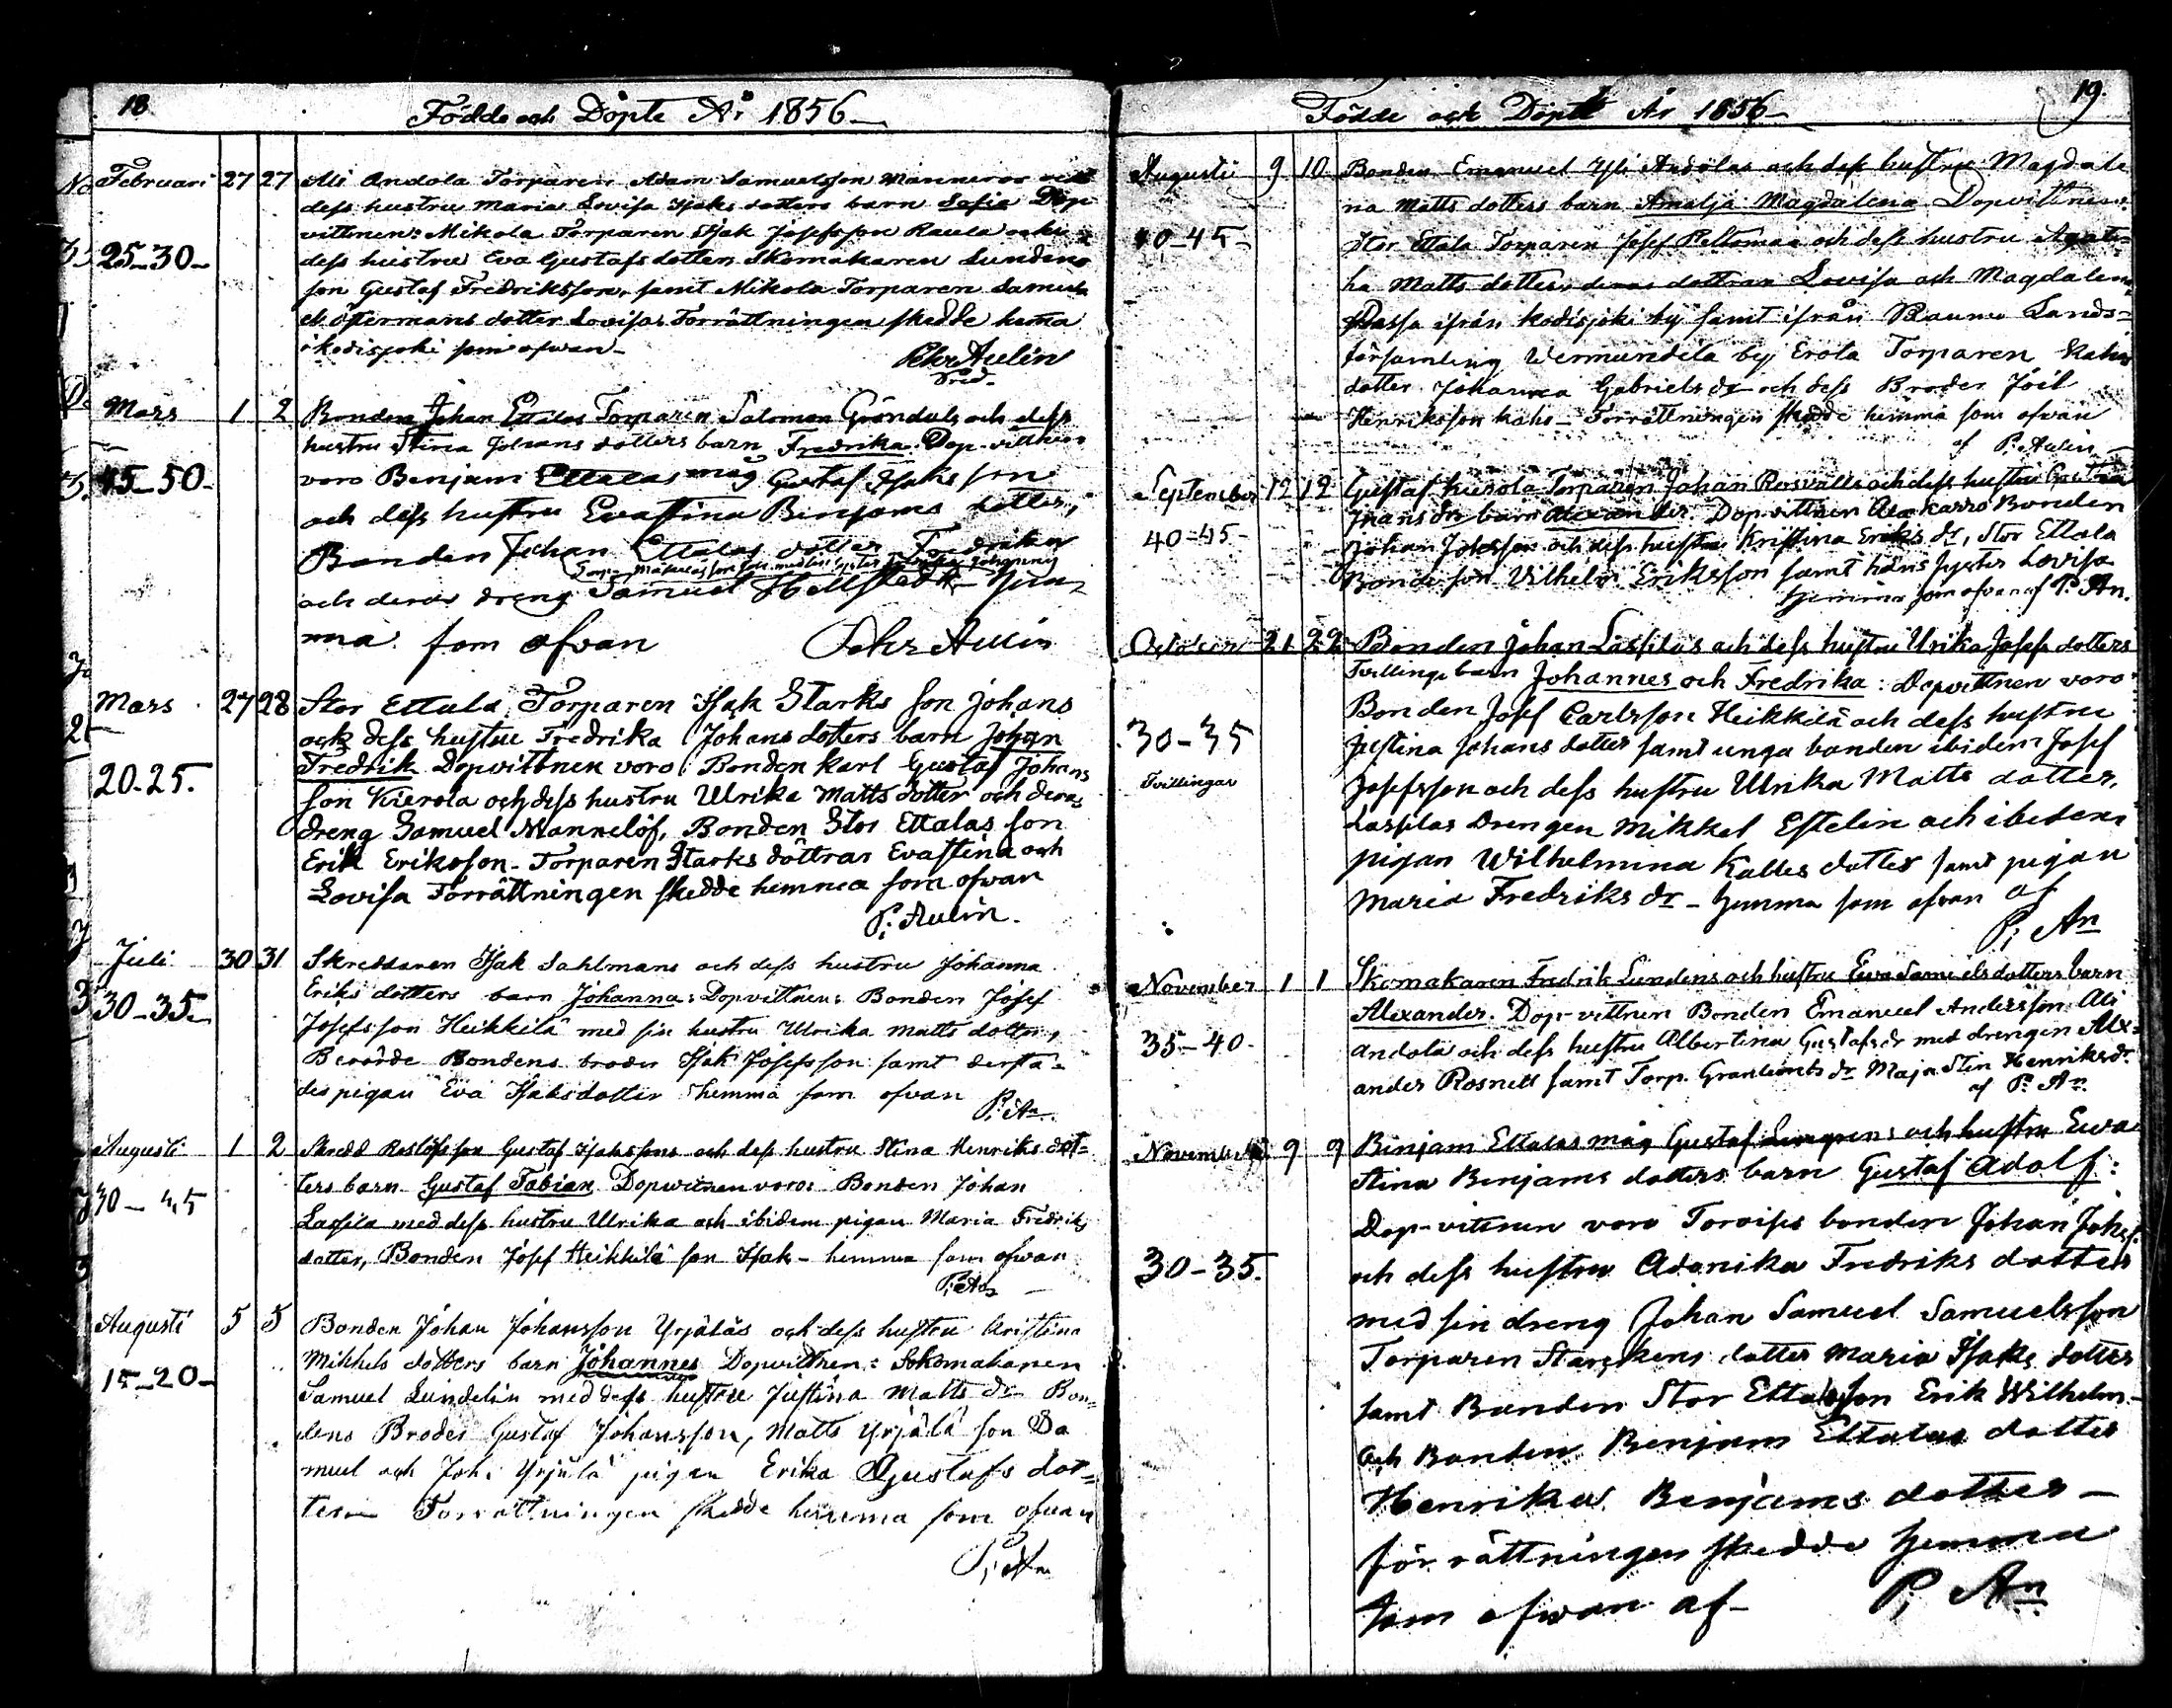 18
Födde och Döpte År 1856
Februari 27 27 Ali Andola Torparen Adam Samuelsson Männeros och
dess hustru Maria Lovisa Isaks dotters barn Sofia Dop
25-30- vittnen: Mikola Torparen Isak Josefsson Raula och
dess hustru Eva Gustafs dotter Skomakaren Lundens
son Gustaf Fredriksson, samt Mikola Torparen Samuel
dotter Lovisa. Förrättningen skedde hema
i kodisjoki som ofwan-
Aulin
Mars 1 2 Bonden Johan Ettalas Torparen Salomon Gröndals och dess
hustru Stina Johans dotters barn Fredrika. Dop-vittnen
45-50- voro Benjam Ettalas måg Gustaf Isaksson
och dess hustru Evastina Benjams dotter,
Bonden Johan Ettalas dotter Fredrika
och deras dreng Samuel Hellstedt- Hem-
ma som ofvan Aulin
Mars 27 28 Stor Ettala Torparen Isak Starks son Johans
och dess hustru Fredrika Johans dotters barn Johan
Fredrik Dopvittnen voro: Bonden Karl Gustaf Johans
20-25. son Kierola och dess hustru Ulrika Matts dotter och deras
dreng Samuel Mannelöf, Bonden Stor Ettalas son
Erik Eriksson- Torparen Starks döttrar Evastina och
Lovisa Förrättningen skedde hemma som ofvan
P: Aulin.
Juli 30 31 Skreddaren Isak Sahlmans och dess hustru Johanna
Eriks dotters barn Johanna: Dopvittnen: Bonden Josef
30-35- Josefsson Heikkilä med sin hustru Ulrika Matts dotter,
Berörde Bondens broder Isak Josefsson samt dersta-
des pigan Eva Isaksdotter hemma som ofvan
P: An
Augusti 1 2 Skredd Gustaf Isakssons och dess hustru Stina Henriks dot-
ters barn Gustaf Fabian Dopvittnen voro: Bonden Johan
30-45 Lassila med dess hustru Ulrika och ibidem pigan Maria Fredriks
dotter, Bonden Josef Heikkilä son Isak- hemma som ofvan
P: An
Augusti 5 5 Bonden Johan Johansson Yrjäläs och dess hustru Kristina
Mikkels dotters barn Johannes Dopvittnen: Sokomakaren
15-20- Samuel Lundelin med dess hustru Justina Matts dr Bon-
dens Broder Gustaf Johansson, Matts Yrjälä son Sa
muel och Joh: Yrjälä pigan Erika Gustafs dot-
ter- Förrättningen skedde hemma som ofvan
P: An
19.
Födde och Döpte År 1856
Augusti 9 10 Bonden Emanuel Yli Andolas och dess hustru Magdale
na Matts dotters barn Amalja Magdalena Dopvittnen:
40-45- Stor Ettala Torparen Josef Peltomaa och dess hustru Agat-
ha Matts dotter, deras döttrar Lovisa och Magdalena,
Dessa ifrån kodisjoki by samt ifrån Raumo Lands-
församling Vermundila by Erola Torparen Kahos
dotter Johanna Gabriels dr och dess Broder Joel
Henriksson kaho- Förrättningen skedde hemma som ofvan
af P: Aulin
September 12 12 Gustaf Kierola Torparen Johan Rosvalls och dess hustru
barn Alexander. Dopvittnen Bonden
40-45- Johan och dess hustru Kristina Eriks dr, Stor Ettala
Bonde son Vilhelm Eriksson samt hans syster Lovisa
hemma som ofvan af P: An.
October 21 22 Bonden Johan Lassilas och dess hustru Ulrika Josefs dotters
Tvillinge barn Johannes och Fredrika: Dopvittnen voro
30-35 Bonden Josef Carlsson Heikkilä och dess hustru
Tvillingar Justina Johans dotter samt unga bonden ibidem Josef
Josefsson och dess hustru Ulrika Matts dotter,
Lassilas Drengen Mikkel Estelin och ibidem
pigan Wilhelmina Kalles dotter samt pigan
Maria Fredriks dr- hemma som ofvan af
P; An
November 1 1 Skomakaren Fredrik Lundens och hustru Eva Samuels dotters barn
Alexander. Dop-vittnen Bonden Emanuel Andersson Ali
35-40- andola och dess hustru Albertina Gustafs dr med drengen Alex-
ander Rosnell samt Torp. dr Maja Stin Henriks dr
af P. An
November 9 9 Binjam Ettalas måg Gustaf och hustru Ewa
Stina Benjams dotters barn Gustaf Adolf:
Dop-vittnen voro bonden Johan
30-35. och dess hustru Fredriks dotter
med sin dreng Johan Samuel Samuelsson
Torparen Starckens dotter Maria Isaks dotter
samt Bonden Stor Ettala son Erik Wilhelm-
och Bonden Benjam Ettalas dotter
Henrika Benjams dotter-
förrättningen skedde hemma
som ofwan af- P; An